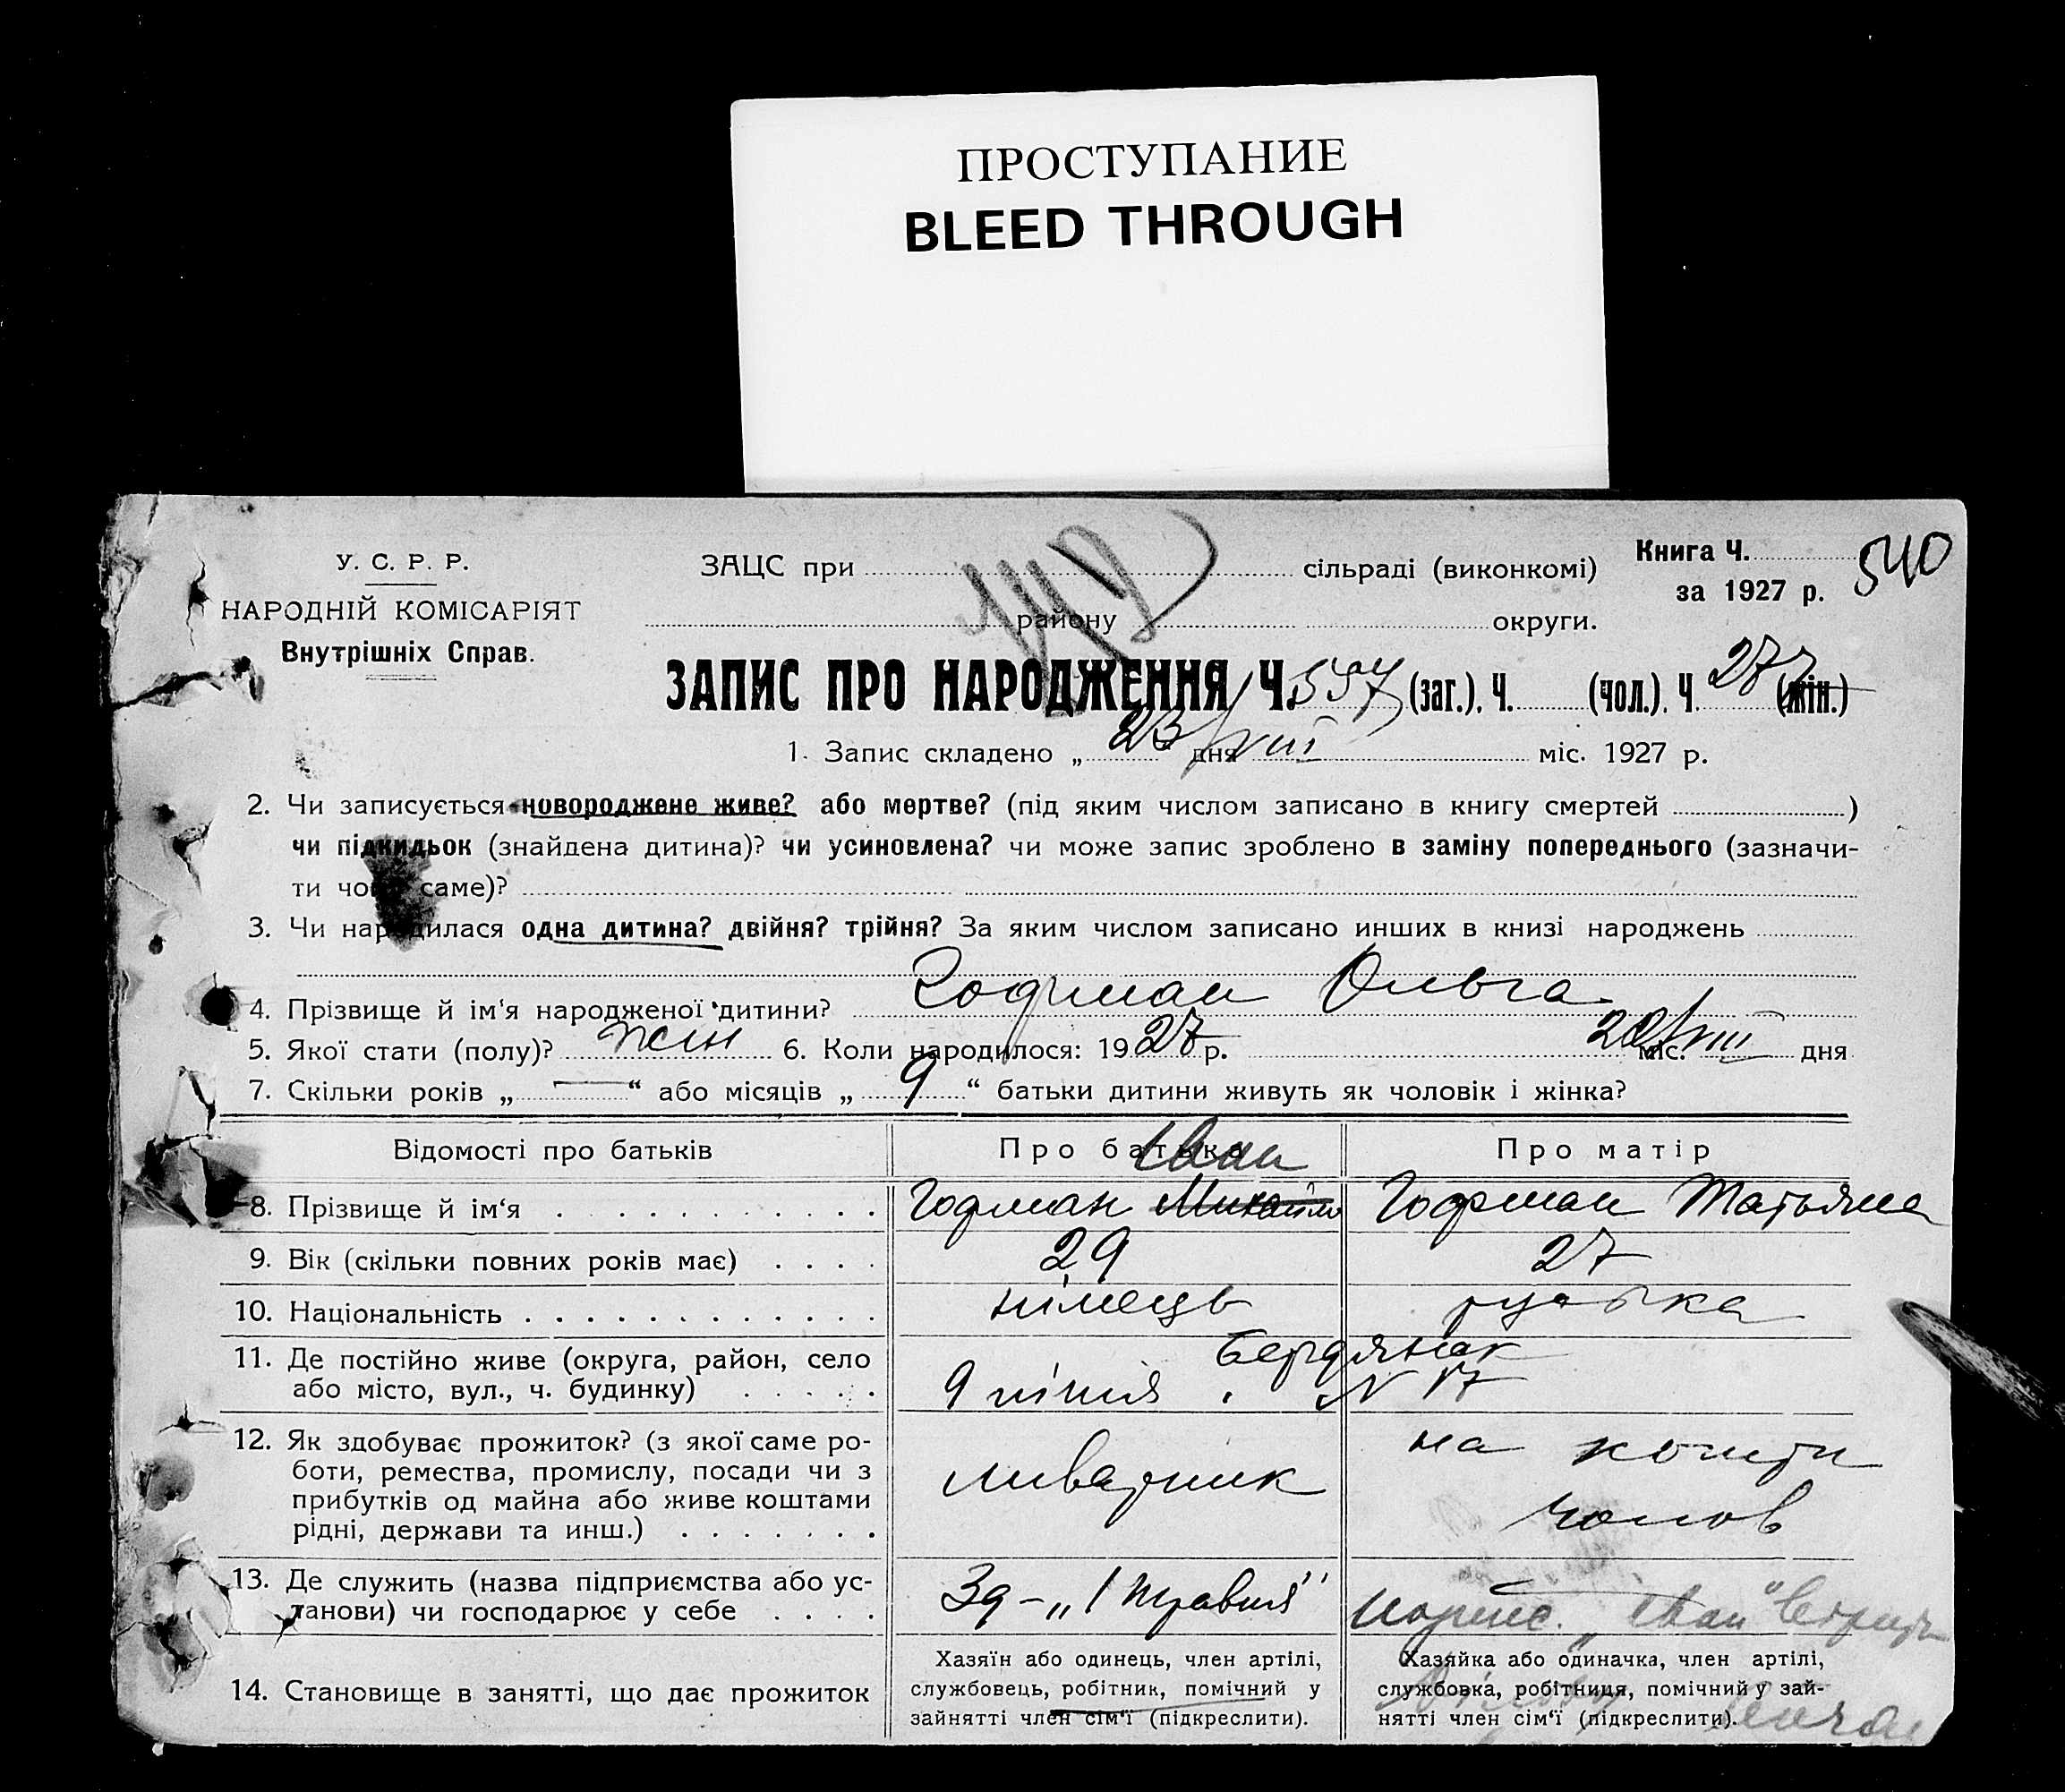 ПРОСТУПАНИЕ
BLEED THROUGH
У. С. Р. Р.
НАРОДНІЙ КОМІСАРІЯТ
Внутрішніх Справ.
ЗАЦС при сільраді (виконкомі)
району округи.
Книга Ч. 540
за 1927 р.
ЗАПИС ПРО НАРОДЖЕННЯ Ч. 557 (заг.). Ч. (чол.). Ч. 277 (жін.)
1. Запис складено „ 23 дня VIII міс. 1927 р.
2. Чи записується новороджене живе? або мертве? (під яким числом записано в книгу смертей )
чи підкидьок (знайдена дитина)? чи усиновлена? чи може запис зроблено в заміну попереднього (зазначи-
ти чого саме)?
3. Чи народилася одна дитина? двійня? трійня? За яким числом записано инших в книзі народжень
4. Прізвище й ім'я народженої дитини? Гофман Ольга
5. Якої стати (полу)? жін 6. Коли народилося: 1927 р. 20/VIII міс. дня
7. Скільки років „ — “ або місяців „ 9 “ батьки дитини живуть як чоловік і жінка?
Відомості про батьків
Про батька
Про матір
Іван
8. Прізвище й ім'я
Гофман Михайло
Гофман Татьяна
9. Вік (скільки повних років має)
29
27
10. Національність
німець
руська
11. Де постійно живе (округа, район, село
або місто, вул., ч. будинку)
Бердянськ
9 лінія N 17
12. Як здобуває прожиток? (з якої саме ро-
боти, ремества, промислу, посади чи з
прибутків од майна або живе коштами
рідні, держави та инш.)
ливарник
на кошти
чолов
13. Де служить (назва підприємства або ус-
танови) чи господарює у себе
Зд - „1 Травня"
„Іван"
14. Становище в занятті, що дає прожиток
Хазяїн або одинець, член артілі,
службовець, робітник, помічний у
зайнятті член сім'ї (підкреслити).
Хазяйка або одиначка, член артілі,
службовка, робітниця, помічний у зай-
нятті член сім'ї (підкреслити).